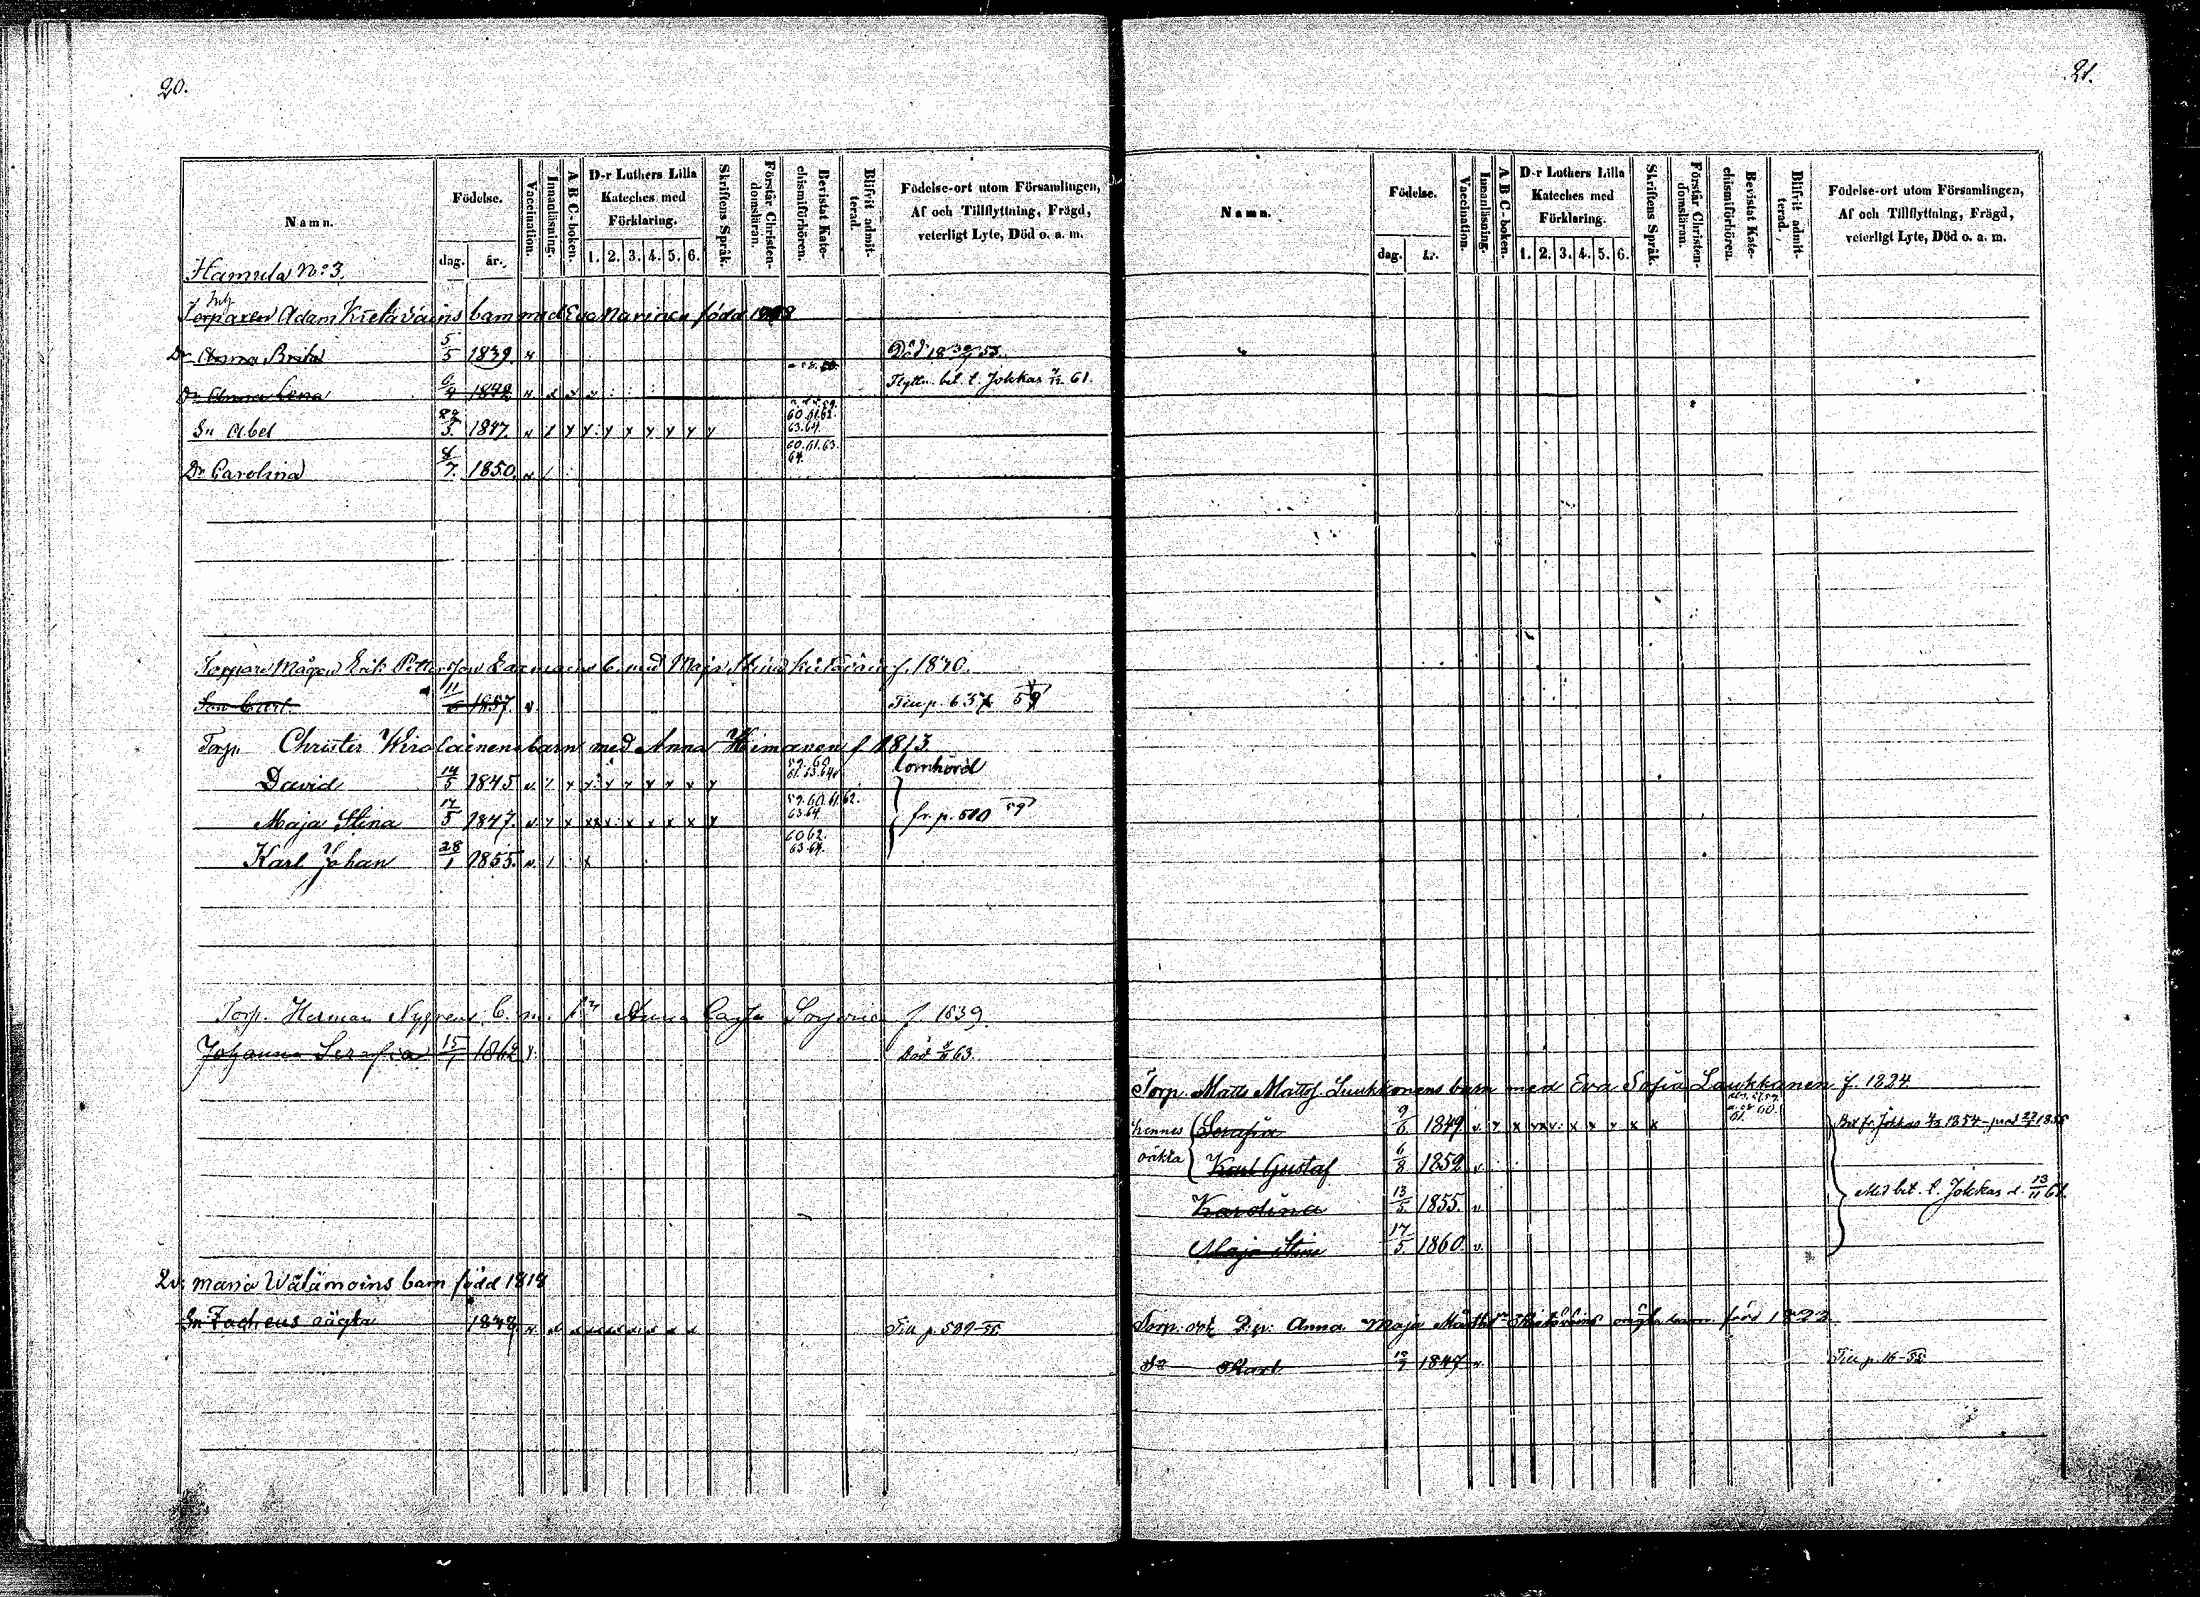 20.
Namn.
Födelse.
dag. år.
Vaccination.
Innanläsning.
A B C-boken.
D-r Luthers Lilla Kateches med Förklaring.
1. 2. 3. 4. 5. 6.
Skriftens Språk.
Förstår Christendomsläran.
Bevistat Katechismiförhören.
Blifvit admitterad.
Födelse-ort utom Församlingen,
Af och Tillflyttning, Frägd,
veterligt Lyte, Död o. a. m.
Hamula No: 3.
Torparen Adam Kietäväins barn med Eva Narinen född
Dr Anna Brita 5/5 1839. Död
Dr Anna Lena 1842 Flyttn. bet. t. Jokkas 61.
Sn Abel 1847. 60.61.62. 63.64.
Dr Carolina 8/7. 1850. 60.61.63. 64.
Torpare Mågen Erik Petter b. med Maja Stina Kietäväin f. 1840.
Son Carl 11/6 1857. Till p. 637
Torp. Christer Wirolainens barn med Anna Himanen f 1813.
David 14/5 1845 59.60 61.63.64 lomhörd
Maja Stina 17/5 1847. 59.60.61.62. 63.64 fr. p. 510 59
Karl Johan 28/1 1855. 60 62. 63.64.
Torp. Herman Nygrens b. m. Anna Cajsa f. 1839.
Johanna Serafia 15/1 1862 Död 63.
Maria Wätämoins barn född 1818
Sn Zacheus oägta 184 Till p. 589-
21.
Namn.
Födelse.
dag. år.
Vaccination.
Innanläsning.
A B C-boken.
D-r Luthers Lilla Kateches med Förklaring.
1. 2. 3. 4. 5. 6.
Skriftens Språk.
Förstår Christendomsläran.
Bevistat Katechismiförhören.
Blifvit admitterad.
Födelse-ort utom Församlingen,
Af och Tillflyttning, Frägd,
veterligt Lyte, Död o. a. m.
Torp. Matts Mattsf. Luukkonens barn med Eva Sofia Laukkanen f. 1824
hennes oäkta Serafia 9/6 1849 60. 61. Bet. fr. Jokkas 1854
Karl Gustaf 6/8 1852
Karolina 13/5 1855. Med bet. t. Jokkas d. 13/11 61.
Maja Stina 17/5 1860.
Torp. Anna Maja oägta barn född 1822
Sn Karl 1847 Till p. 16-